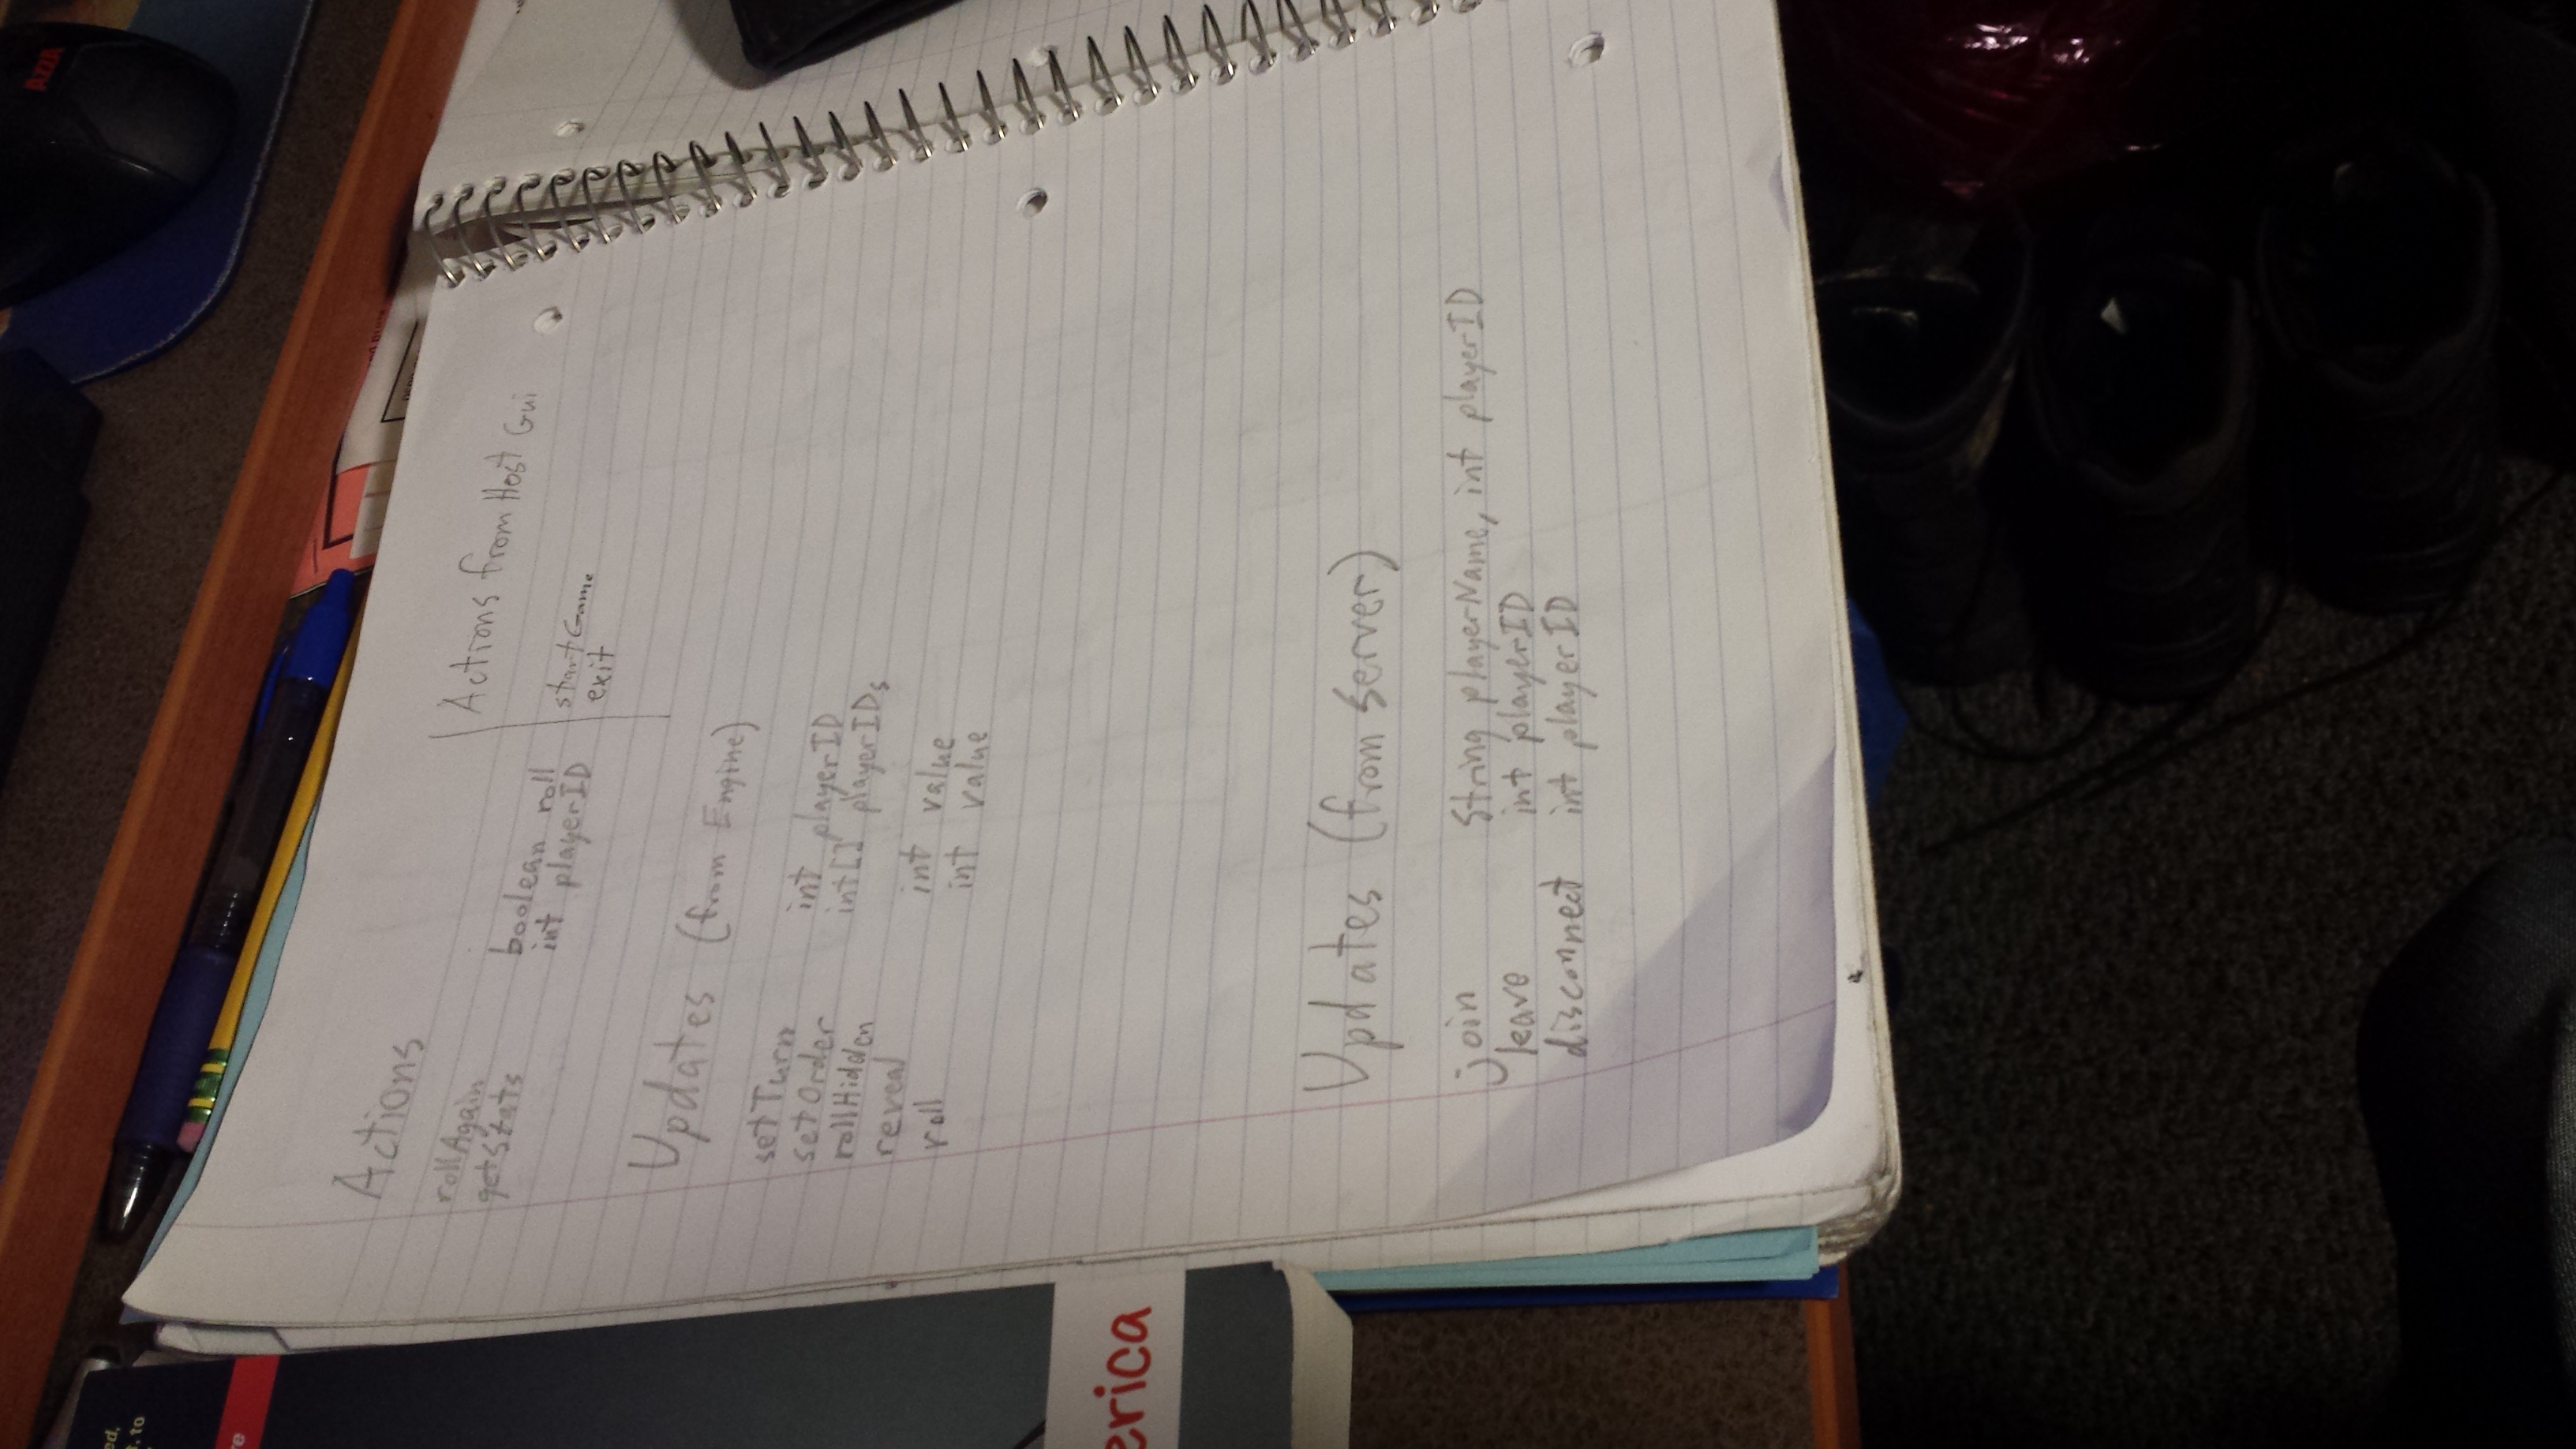 Actions
rollAgain boolean roll
getStats int playerID
Actions from Host Gui
startGame
exit
Updates (from Engine)
setTurn int playerID
setOrder int[] playerIDs
rollHidden
reveal int value
roll int value
Updates (from Server)
join String playerName, int playerID
leave int playerID
disconnect int playerID
erica